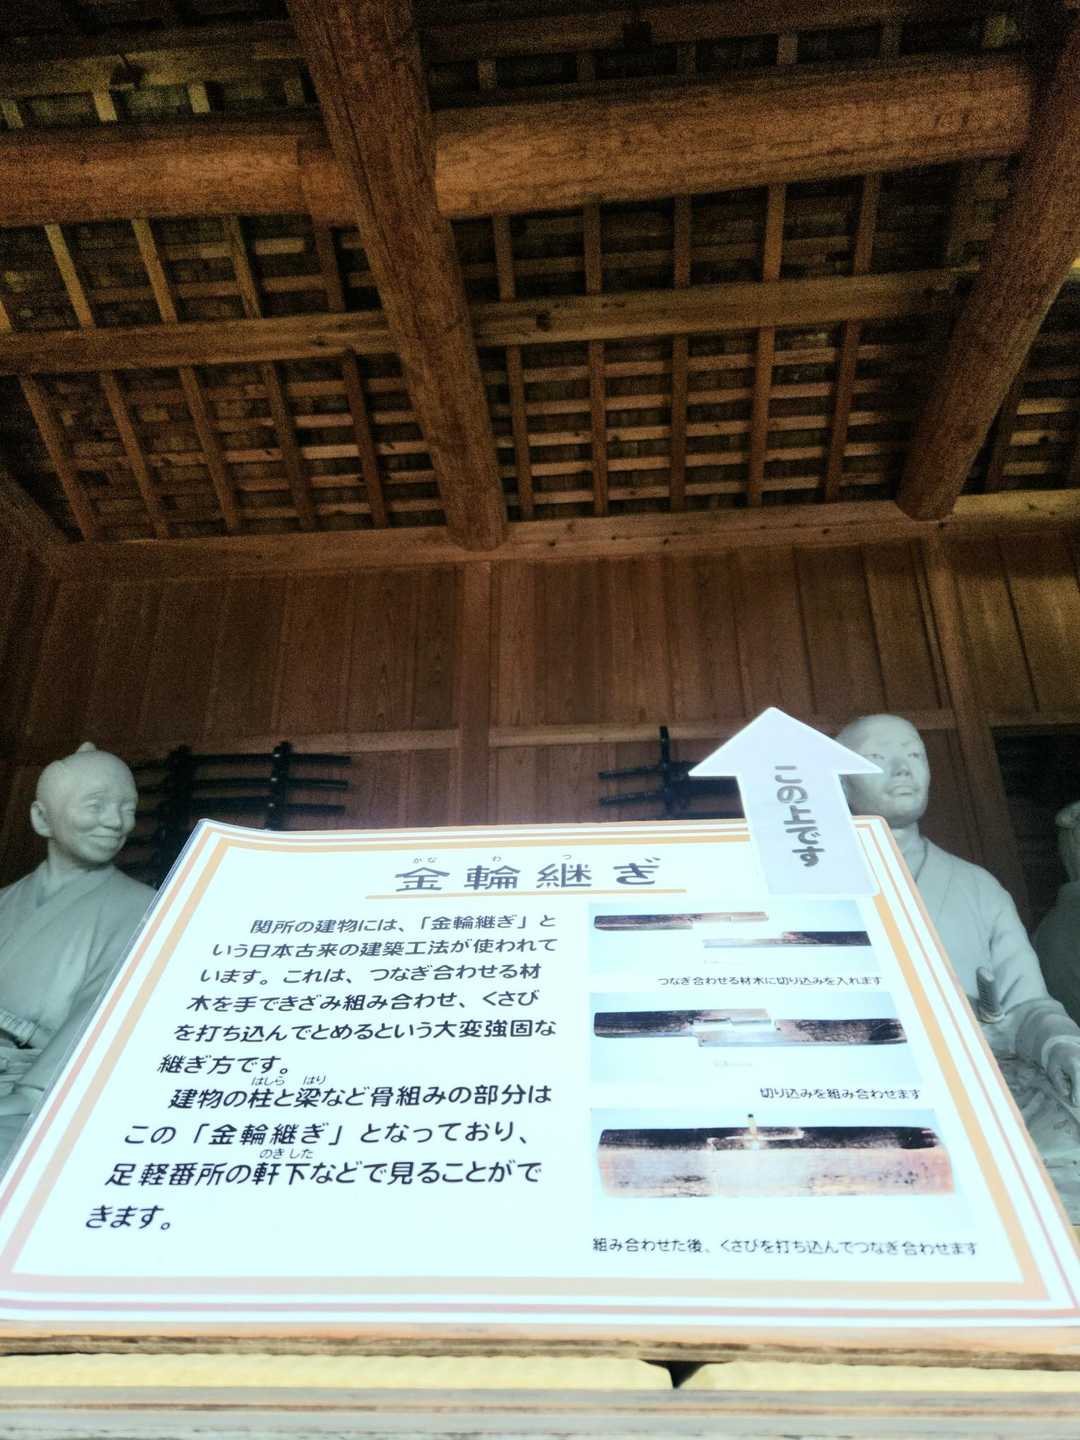 この上です
かな わ つ
金輪継ぎ
関所の建物には、「金輪継ぎ」と
いう日本古来の建築工法が使われて
います。これは、つなぎ合わせる材
木を手できざみ組み合わせ、くさび
を打ち込んでとめるという大変強固な
継ぎ方です。
はしら はり
建物の柱と梁など骨組みの部分は
この「金輪継ぎ」となっており、
のきした
足軽番所の軒下などで見ることがで
きます。
つなぎ合わせる材木に切り込みを入れます
切り込みを組み合わせます
組み合わせた後、くさびを打ち込んでつなぎ合わせます